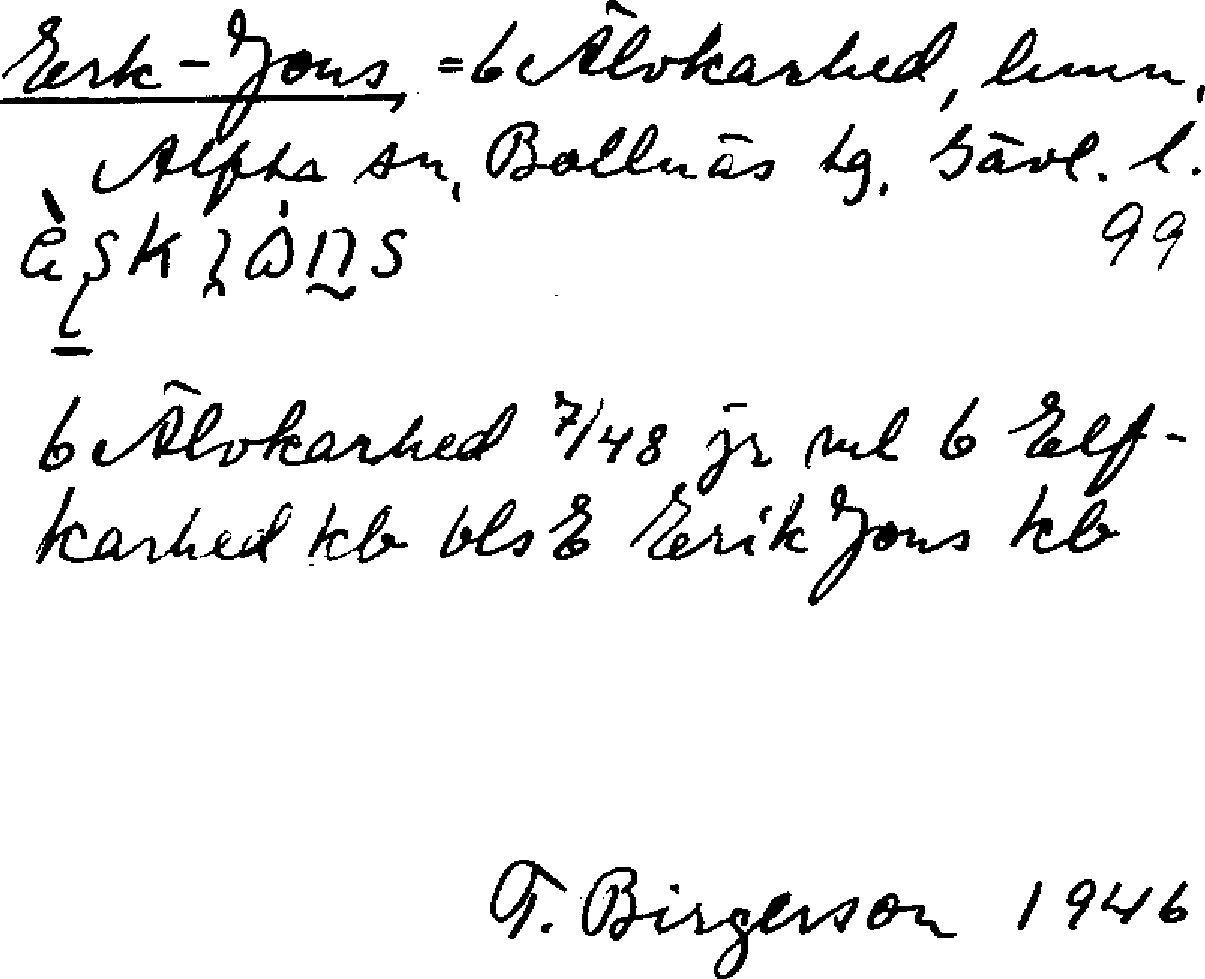 Eersk-Jons, =6 Älvkarhed, hmn,
Alfta sn, Bollnäs tg, Gävl. l.
99
6 Älvkarhed 7/48 jr ml 6 Elf-
karhed kb bls E Eerik Jons kb
T. Birgerson 1946